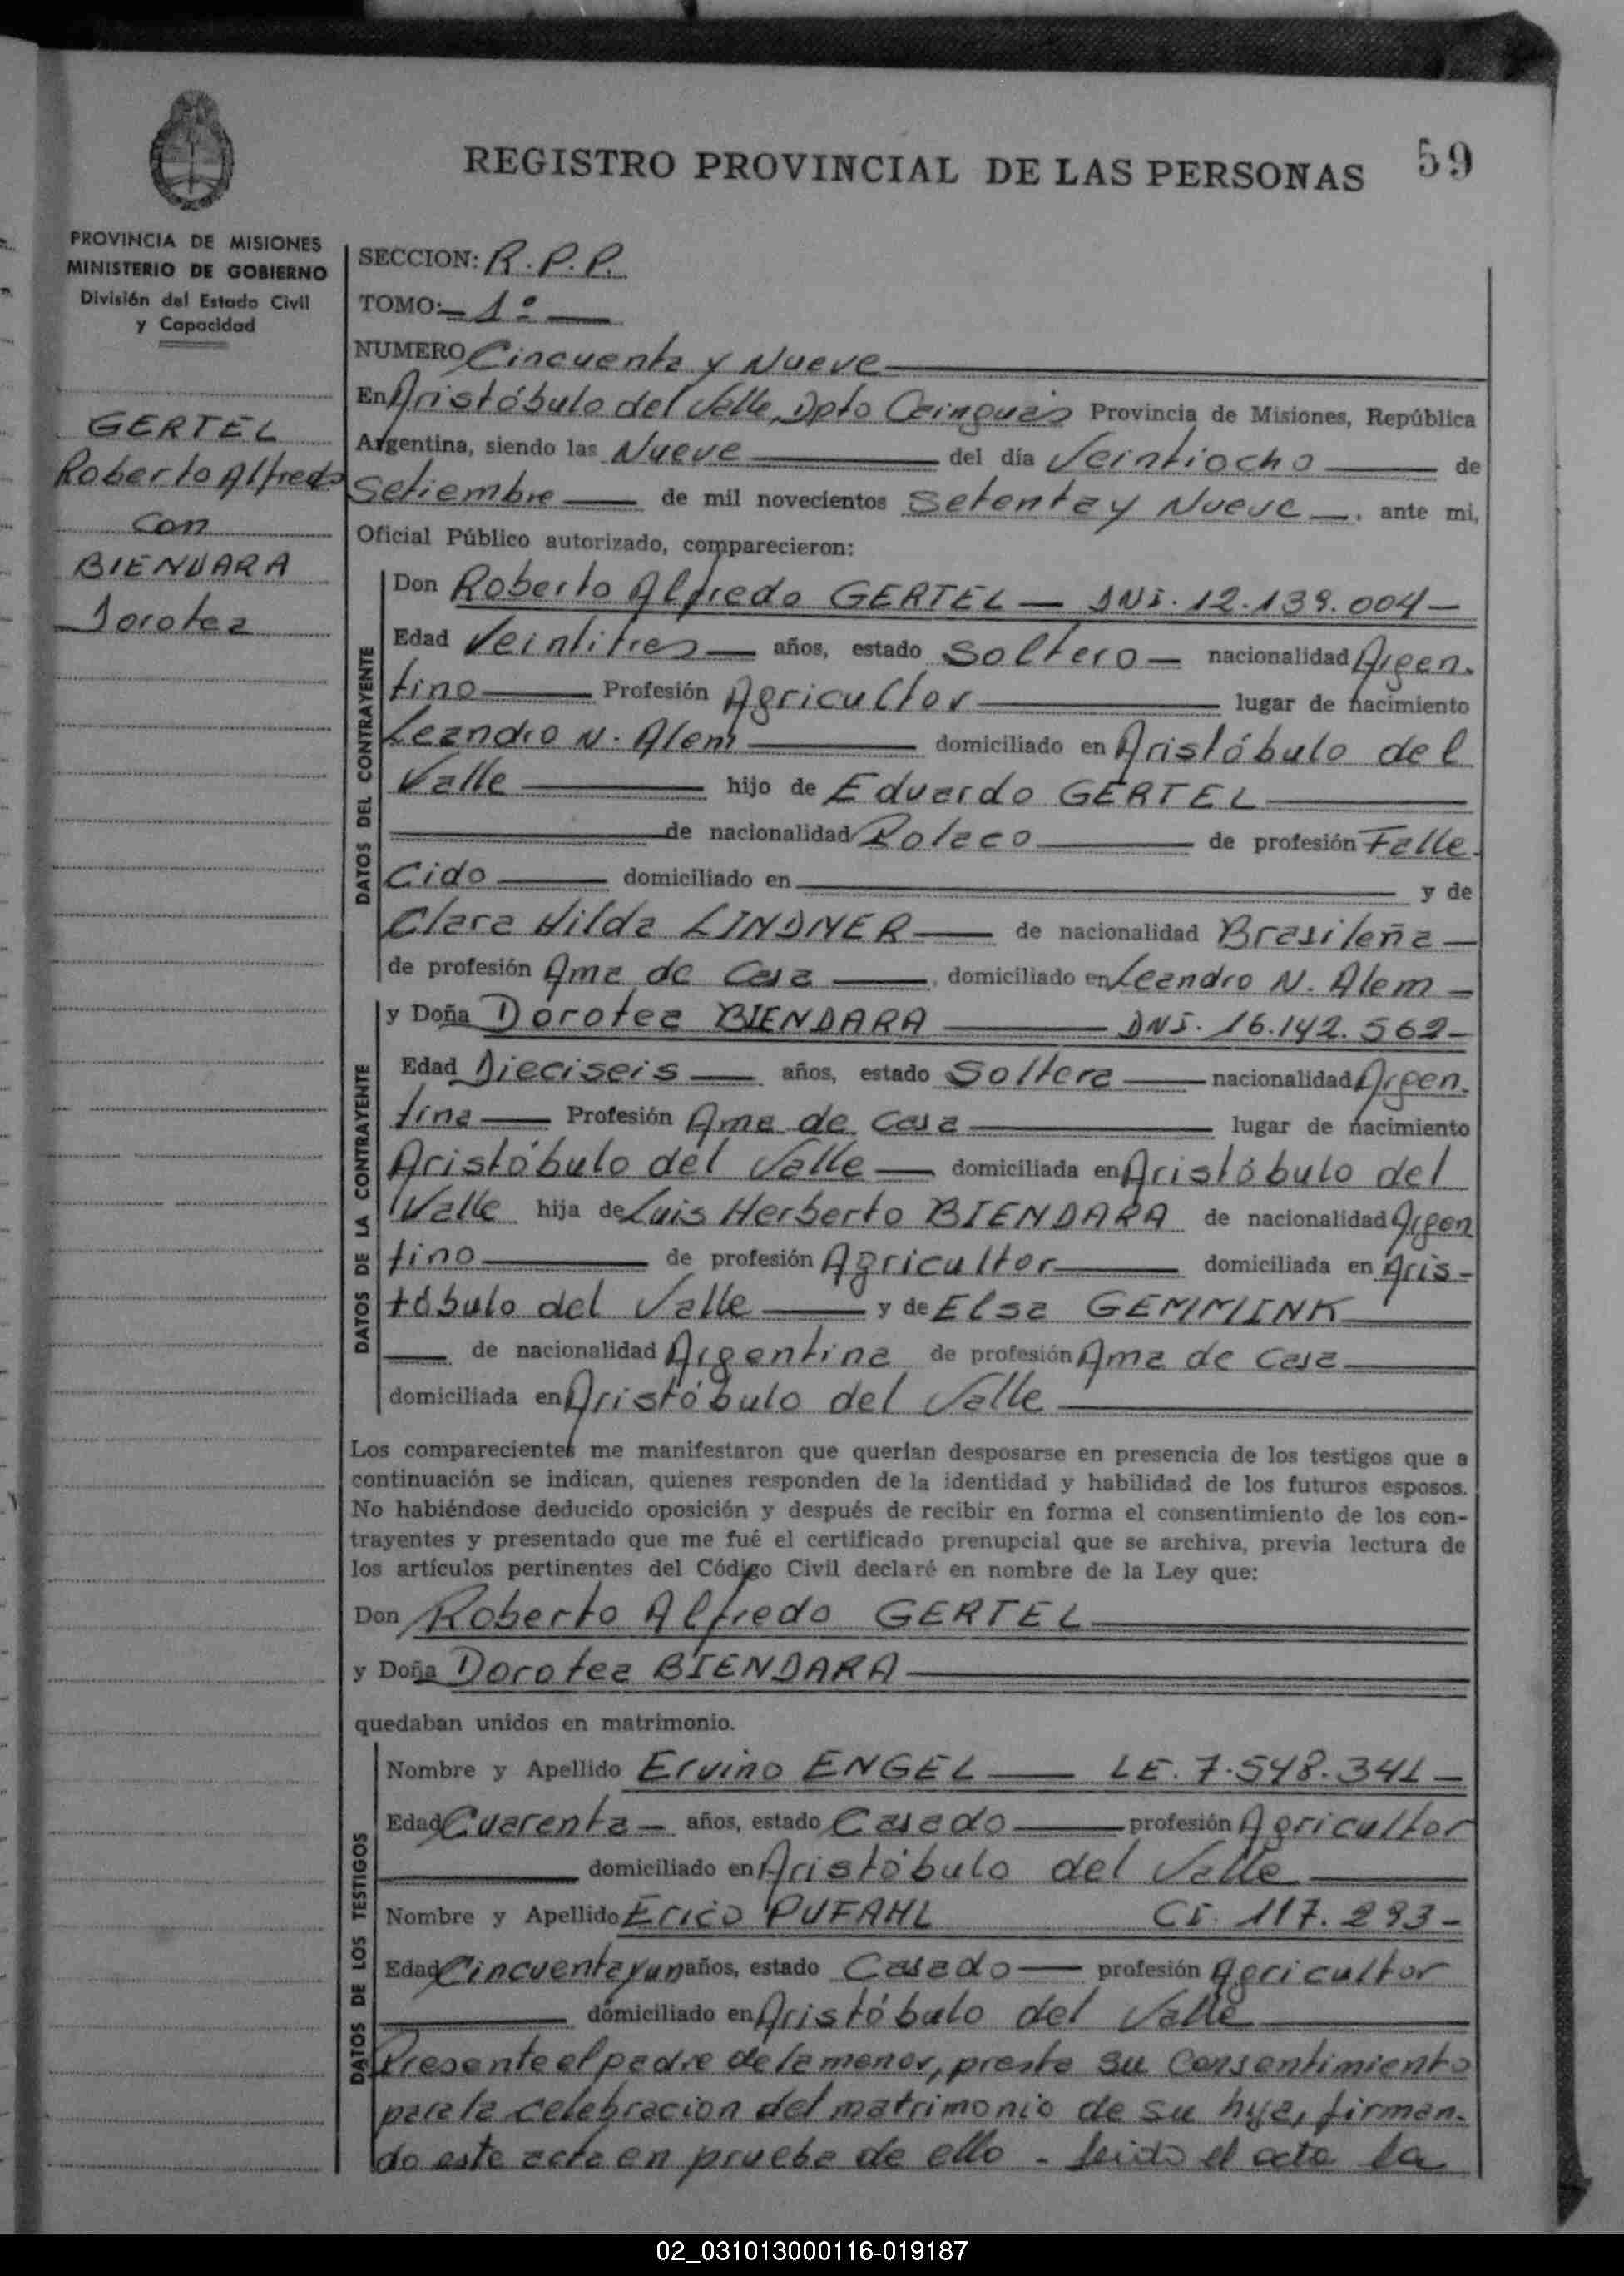 REGISTRO PROVINCIAL DE LAS PERSONAS 59
PROVINCIA DE MISIONES
MINISTERIO DE GOBIERNO
División del Estado Civil
y Capacidad
GERTEL
Roberto Alfredo
con
BIENDARA
Dorotea
SECCION: R.P.P.
TOMO: 1º
NUMERO Cincuenta y Nueve
En Aristóbulo del Valle, Dpto Cainguás Provincia de Misiones, República
Argentina, siendo las Nueve del día Veintiocho de
Setiembre de mil novecientos Setenta y Nueve, ante mi,
Oficial Público autorizado, comparecieron:
DATOS DEL CONTRAYENTE
Don Roberto Alfredo GERTEL — DNI. 12.139.004 —
Edad Veintitres — años, estado Soltero — nacionalidad Argen-
tino Profesión Agricultor lugar de nacimiento
Leandro N. Alem domiciliado en Aristóbulo del
Valle hijo de Eduardo GERTEL
de nacionalidad Polaco de profesión Falle-
cido domiciliado en y de
Clara Hilda LINDNER de nacionalidad Brasileña —
de profesión Ama de Casa, domiciliado en Leandro N. Alem —
DATOS DE LA CONTRAYENTE
y Doña Dorotea BIENDARA DNI. 16.142.562 —
Edad Dieciseis — años, estado Soltera — nacionalidad Argen-
tina Profesión Ama de Casa lugar de nacimiento
Aristóbulo del Valle domiciliada en Aristóbulo del
Valle hija de Luis Herberto BIENDARA de nacionalidad Argen
tino de profesión Agricultor domiciliada en Aris-
tóbulo del Valle y de Elsa GEMMINK
de nacionalidad Argentina de profesión Ama de Casa
domiciliada en Aristóbulo del Valle
Los comparecientes me manifestaron que querían desposarse en presencia de los testigos que a
continuación se indican, quienes responden de la identidad y habilidad de los futuros esposos.
No habiéndose deducido oposición y después de recibir en forma el consentimiento de los con-
trayentes y presentado que me fué el certificado prenupcial que se archiva, previa lectura de
los artículos pertinentes del Código Civil declaré en nombre de la Ley que:
Don Roberto Alfredo GERTEL
y Doña Dorotea BIENDARA
quedaban unidos en matrimonio.
DATOS DE LOS TESTIGOS
Nombre y Apellido Ervino ENGEL — LE. 7.548.341 —
Edad Cuarenta — años, estado Casado profesión Agricultor
domiciliado en Aristóbulo del Valle
Nombre y Apellido Erico PUFAHL CI. 117.293 —
Edad Cincuenta y un años, estado Casado — profesión Agricultor
domiciliado en Aristóbulo del Valle
Presente el padre de la menor, presta su consentimiento
para la celebracion del matrimonio de su hija, firman-
do este acta en prueba de ello. - Leido el acta la
02_031013000116-019187